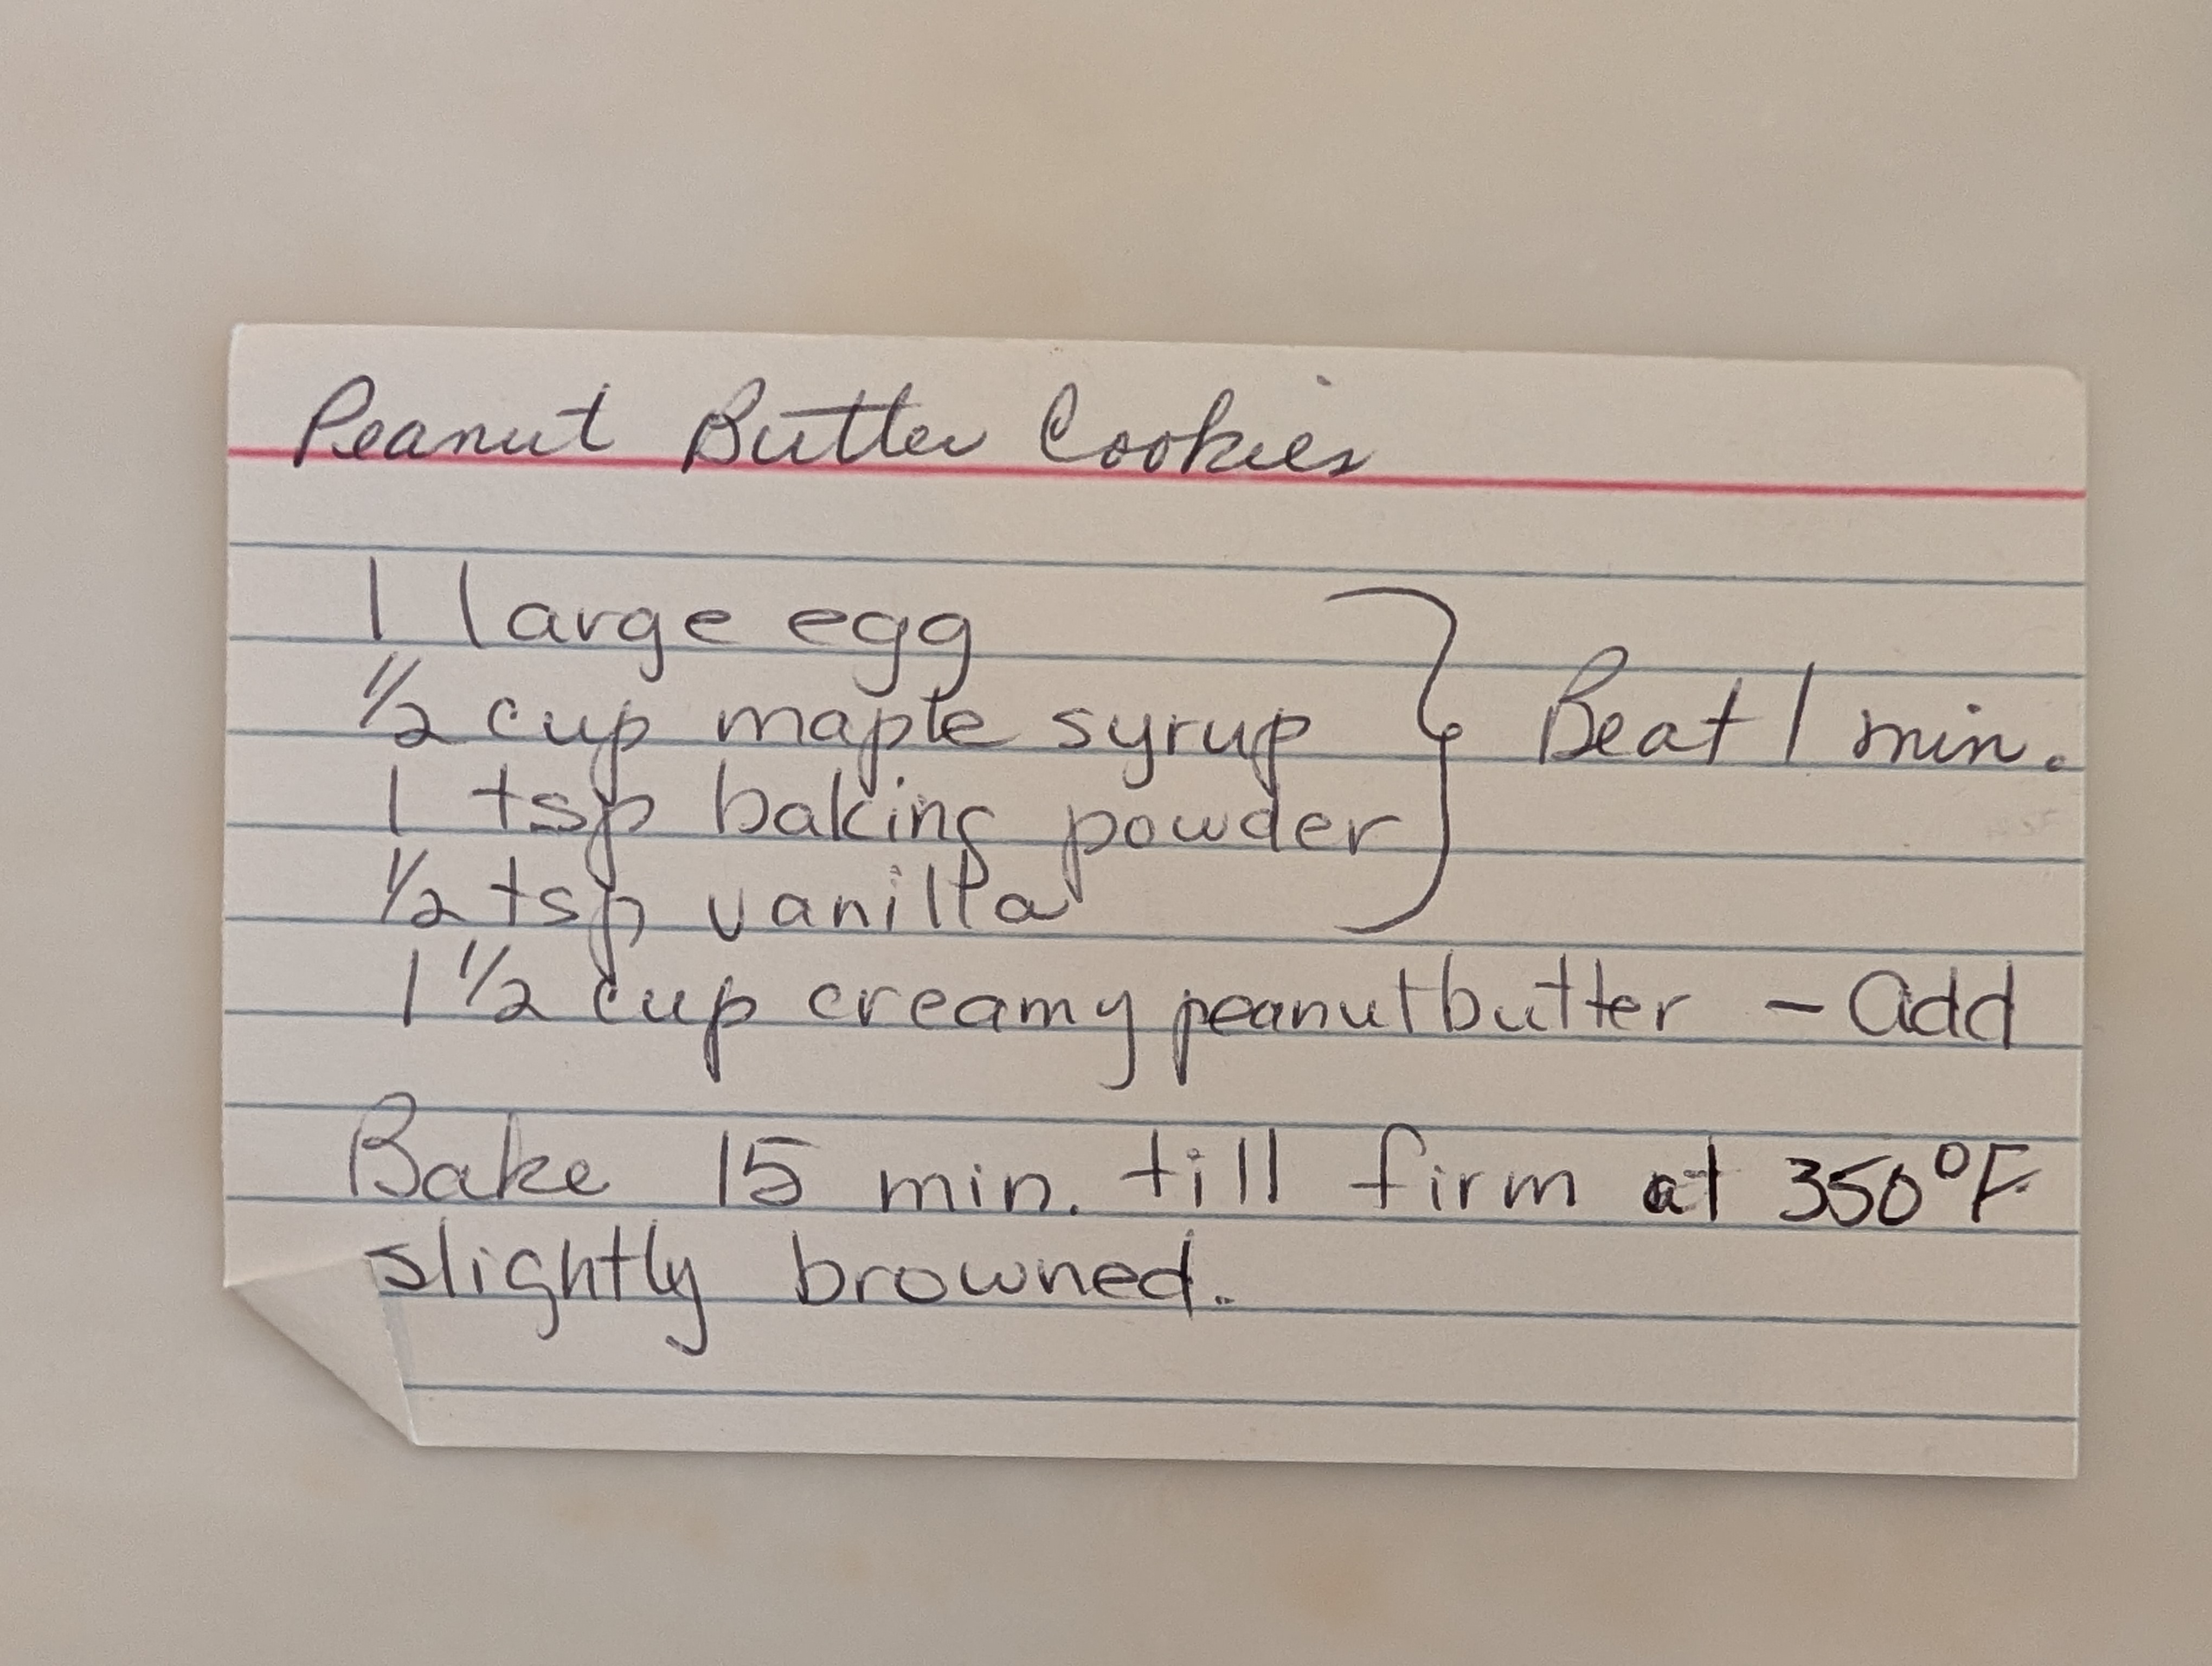 Peanut Butter Cookies
1 large egg
1/2 cup maple syrup
1 tsp baking powder
1/2 tsp vanilla
Beat 1 min.
1 1/2 cup creamy peanutbutter - Add
Bake 15 min. till firm at 350°F
slightly browned.